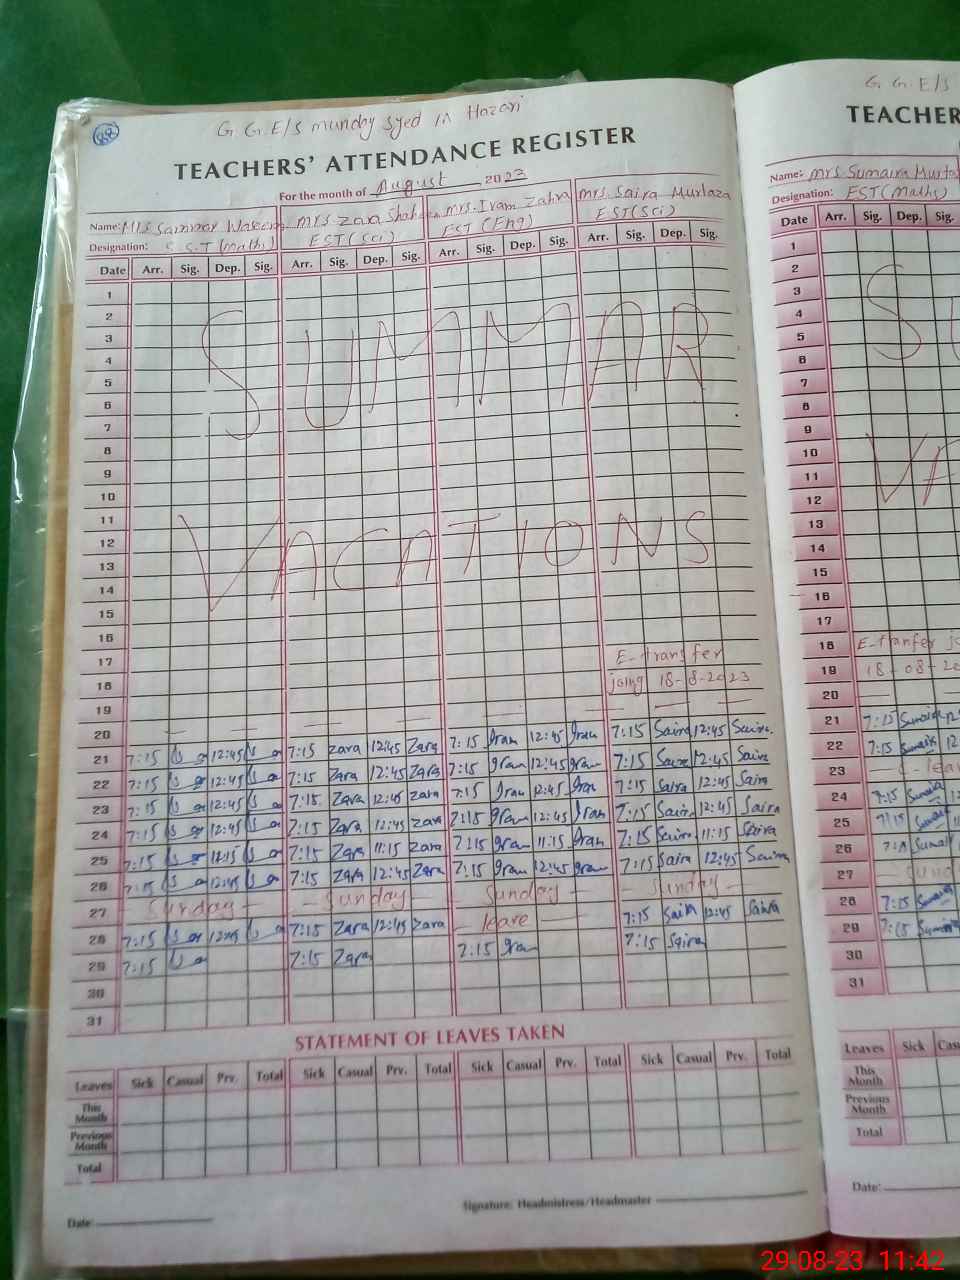 G. G. E/S munday syed in Hazari
TEACHERS' ATTENDANCE REGISTER
For the month of August 2023
Name: Mrs Sammar Waseem Mrs Zara Shaheen Mrs. Iram Zahra Mrs. Saira Murtaza
Designation: S.S.T (Maths) EST (Sci) EST (Eng) EST (Sci)
Date Arr. Sig. Dep. Sig. Arr. Sig. Dep. Sig. Arr. Sig. Dep. Sig. Arr. Sig. Dep. Sig.
1
2
3
4
SUMMAR
5
6
7
8
9
10
11
12
VACATIONS
13
14
15
16
17 E-transfer
18 joing 18-8-2023
19
20
21 7:15 12:45 7:15 Zara 12:45 Zara 7:15 Iram 12:45 Iram 7:15 Saira 12:45 Saira
22 7:15 12:45 7:15 Zara 12:45 Zara 7:15 Iram 12:45 Iram 7:15 Saira 12:45 Saira
23 7:15 12:45 7:15 Zara 12:45 Zara 7:15 Iram 12:45 Iram 7:15 Saira 12:45 Saira
24 7:15 12:45 7:15 Zara 12:45 Zara 7:15 Iram 12:45 Iram 7:15 Saira 12:45 Saira
25 7:15 7:15 Zara 11:15 Zara 7:15 Iram 11:15 Iram 7:15 Saira 11:15 Saira
26 7:15 12:45 7:15 Zara 12:45 Zara 7:15 Iram 12:45 Iram 7:15 Saira 12:45 Saira
27 Sunday Sunday Sunday Sunday
28 7:15 12:45 7:15 Zara 12:45 Zara leave 7:15 Saira 12:45 Saira
29 7:15 7:15 Zara 7:15 Iram 7:15 Saira
30
31
STATEMENT OF LEAVES TAKEN
Leaves Sick Casual Prv. Total Sick Casual Prv. Total Sick Casual Prv. Total Sick Casual Prv. Total
This Month
Previous Month
Total
Date:
Signature: Headmistress/Headmaster
G. G. E/S
TEACHER
Name: Mrs Sumaira Murta
Designation: EST (Maths)
Date Arr. Sig. Dep. Sig.
1
2
3
4
5
6
7
8
9
10
11
12
13
14
15
16
17
18 E-tranfer jo
19 18-08-20
20
21 7:15 Sumaira 12
22 7:15 Sumaira 12
23
24 7:15 Sumaira
25 7:15 Sumaira
26 Sumaira
27
28 7:15 Sumaira
29 7:15 Sumaira
30
31
Leaves Sick Cas
This Month
Previous Month
Total
Date:
29-08-23 11:42